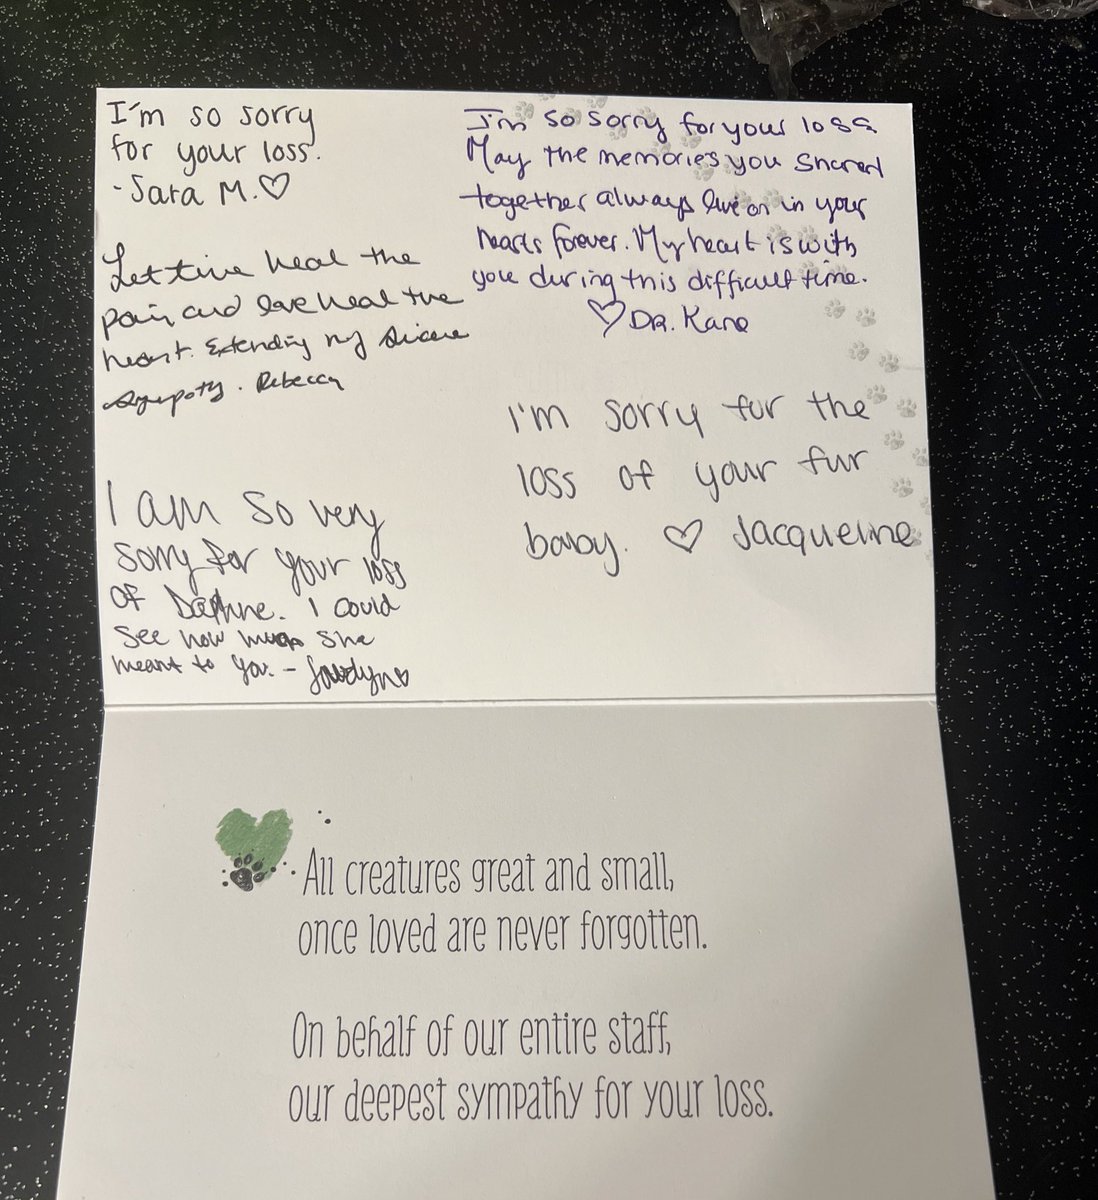 I'm so sorry
for your loss.
- Sara M.♡
Let time heal the
pain and love heal the
heart. Extending my sincere
sympathy. Rebecca
I am so very
sorry for your loss
of Daphne. I could
see how much she
meant to you. -
I'm so sorry for your loss
May the memories you shared
together always live on in your
hearts forever. My heart is with
you during this difficult time.
♡ DR. Kane
I'm sorry for the
loss of your fur
baby. ♡ Jacqueline
All creatures great and small,
once loved are never forgotten.
On behalf of our entire staff,
our deepest sympathy for your loss.